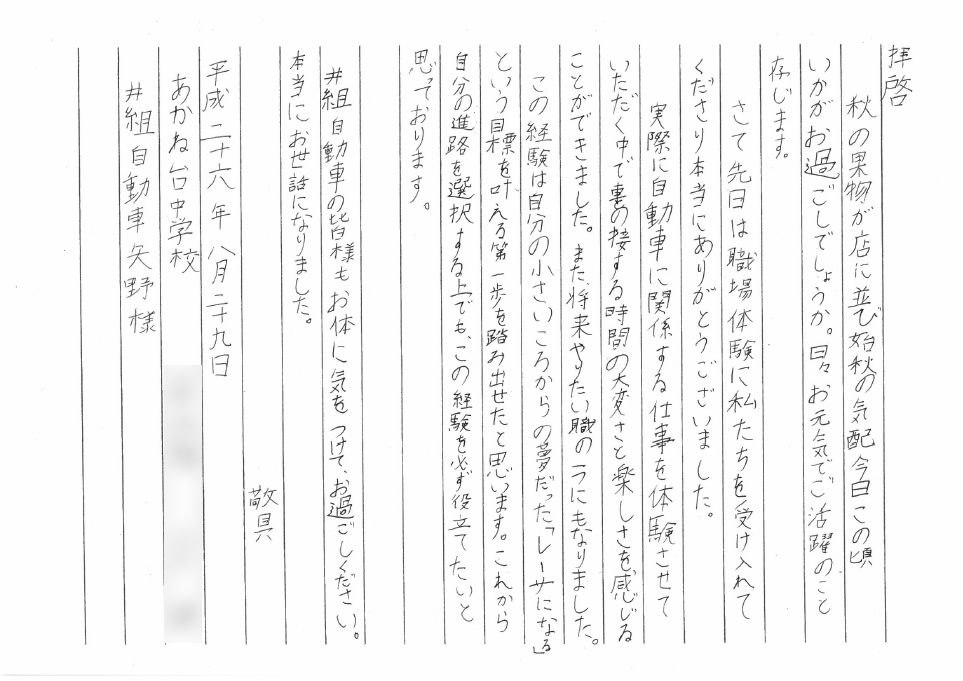 拝啓
秋の果物が店に並び始秋の気配今日この頃
いかがお過ごしでしょうか。日々お元気でご活躍のこと
存じます。
さて先日は職場体験に私たちを受け入れて
くださり本当にありがとうございました。
実際に自動車に関係する仕事を体験させて
いただく中で妻の接する時間の大変さと楽しさを感じる
ことができました。また、将来やりたい職の一つにもなりました。
この経験は自分の小さいころからの夢だった「レーサになる」
という目標を叶える第一歩を踏み出せたと思います。これから
自分の進路を選択する上でも、この経験を必ず役立てたいと
思っております。
井組自動車の皆様もお体に気をつけて、お過ごしください。
本当にお世話になりました。
敬具
平成二十六年八月二十九日
あかね台中学校
井組自動車矢野様